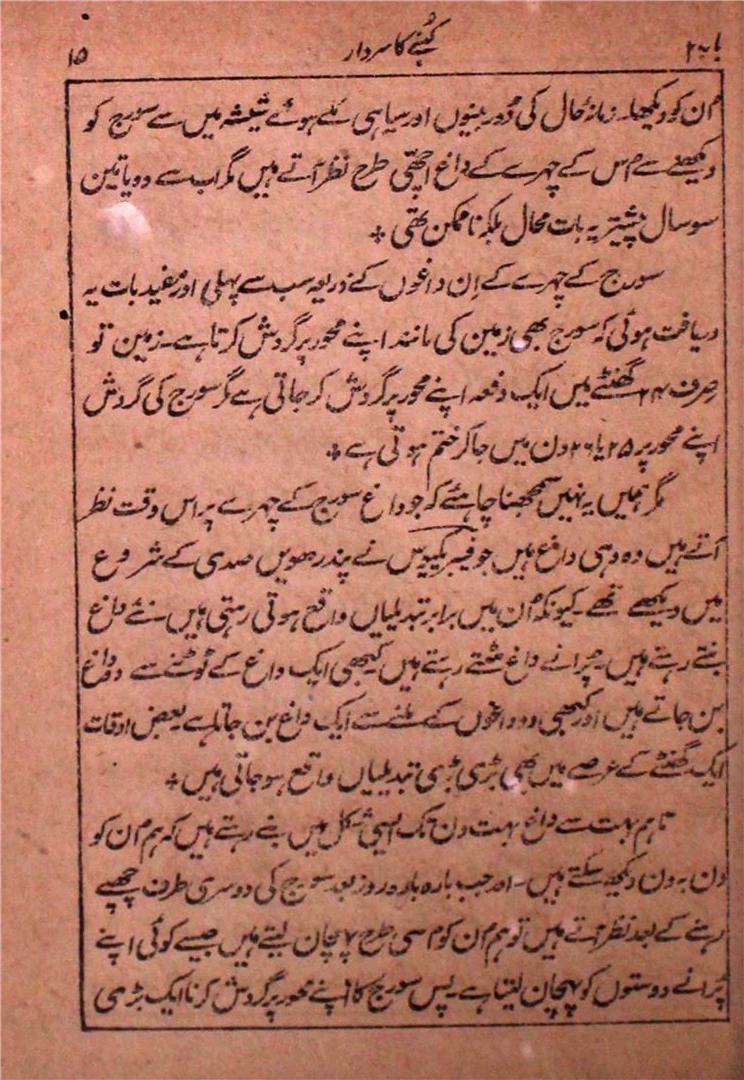 باب ۲ کُنبے کا سردار ۱۵
اُن کو دیکھا۔ زمانۂ حال کی دُوربینوں اور سیاہی ملے ہوئے شیشہ میں سے سورج کو
دیکھنے سے اس کے چہرے کے داغ اچھی طرح نظر آتے ہیں مگر اب سے دو یا تین
سو سال پیشتر یہ بات محال بلکہ ناممکن تھی ٭
سورج کے چہرے کے اِن داغوں کے ذریعہ سب سے پہلی اور مفید بات یہ
دریافت ہوئی کہ سورج بھی زمین کی مانند اپنے محور پر گردش کرتا ہے۔ زمین تو
صرف ۲۴ گھنٹے میں ایک دفعہ اپنے محور پر گردش کر جاتی ہے مگر سورج کی گردش
اپنے محور پر ۲۵ یا ۲۶ دن میں جا کر ختم ہوتی ہے ٭
مگر ہمیں یہ نہیں سمجھنا چاہئے کہ جو داغ سورج کے چہرے پر اس وقت نظر
آتے ہیں وہ وہی داغ ہیں جو فیبریکیوس نے پندرھویں صدی کے شروع
میں دیکھے تھے۔ کیونکہ اُن میں برابر تبدیلیاں واقع ہوتی رہتی ہیں۔ نئے داغ
بنتے رہتے ہیں۔ پُرانے داغ مٹتے رہتے ہیں کبھی ایک داغ کے ٹوٹنے سے دو داغ
بن جاتے ہیں اور کبھی دو داغوں کے ملنے سے ایک داغ بن جاتا ہے بعض اوقات
ایک گھنٹے کے عرصے میں بھی بڑی بڑی تبدیلیاں واقع ہو جاتی ہیں ٭
تاہم بہت سے داغ بہت دن تک ایسی شکل میں بنے رہتے ہیں کہ ہم اُن کو
دن بہ دن دیکھ سکتے ہیں۔ اور جب بارہ بارہ روز بعد سورج کی دوسری طرف چھپے
رہنے کے بعد نظر آتے ہیں تو ہم اُن کو اُسی طرح پہچان لیتے ہیں جیسے کوئی اپنے
پُرانے دوستوں کو پہچان لیتا ہے۔ پس سورج کا اپنے محور پر گردش کرنا ایک بڑی